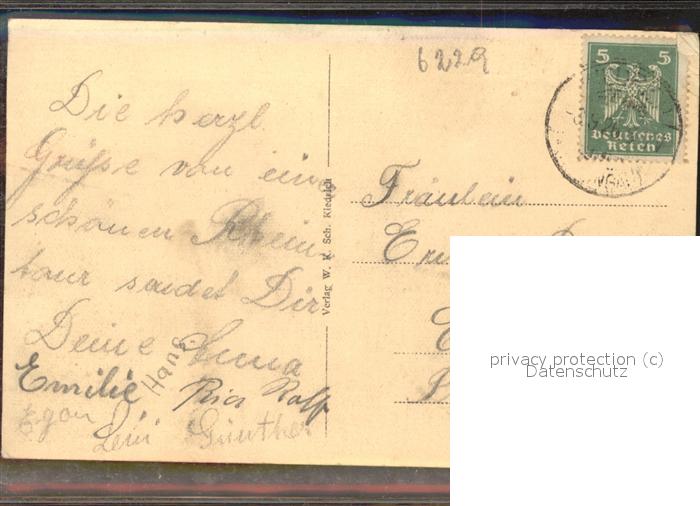 6229
5 5
Deutsches
Reich
Die herzl.
Grüße von eine
schönen Rhein-
tour sendet Dir
Deine Emma
Emilie Hans Rolf
Egon Leni Günther
Verlag W. K. Sch. Kiedrich
Fräulein
privacy protection (c)
Datenschutz